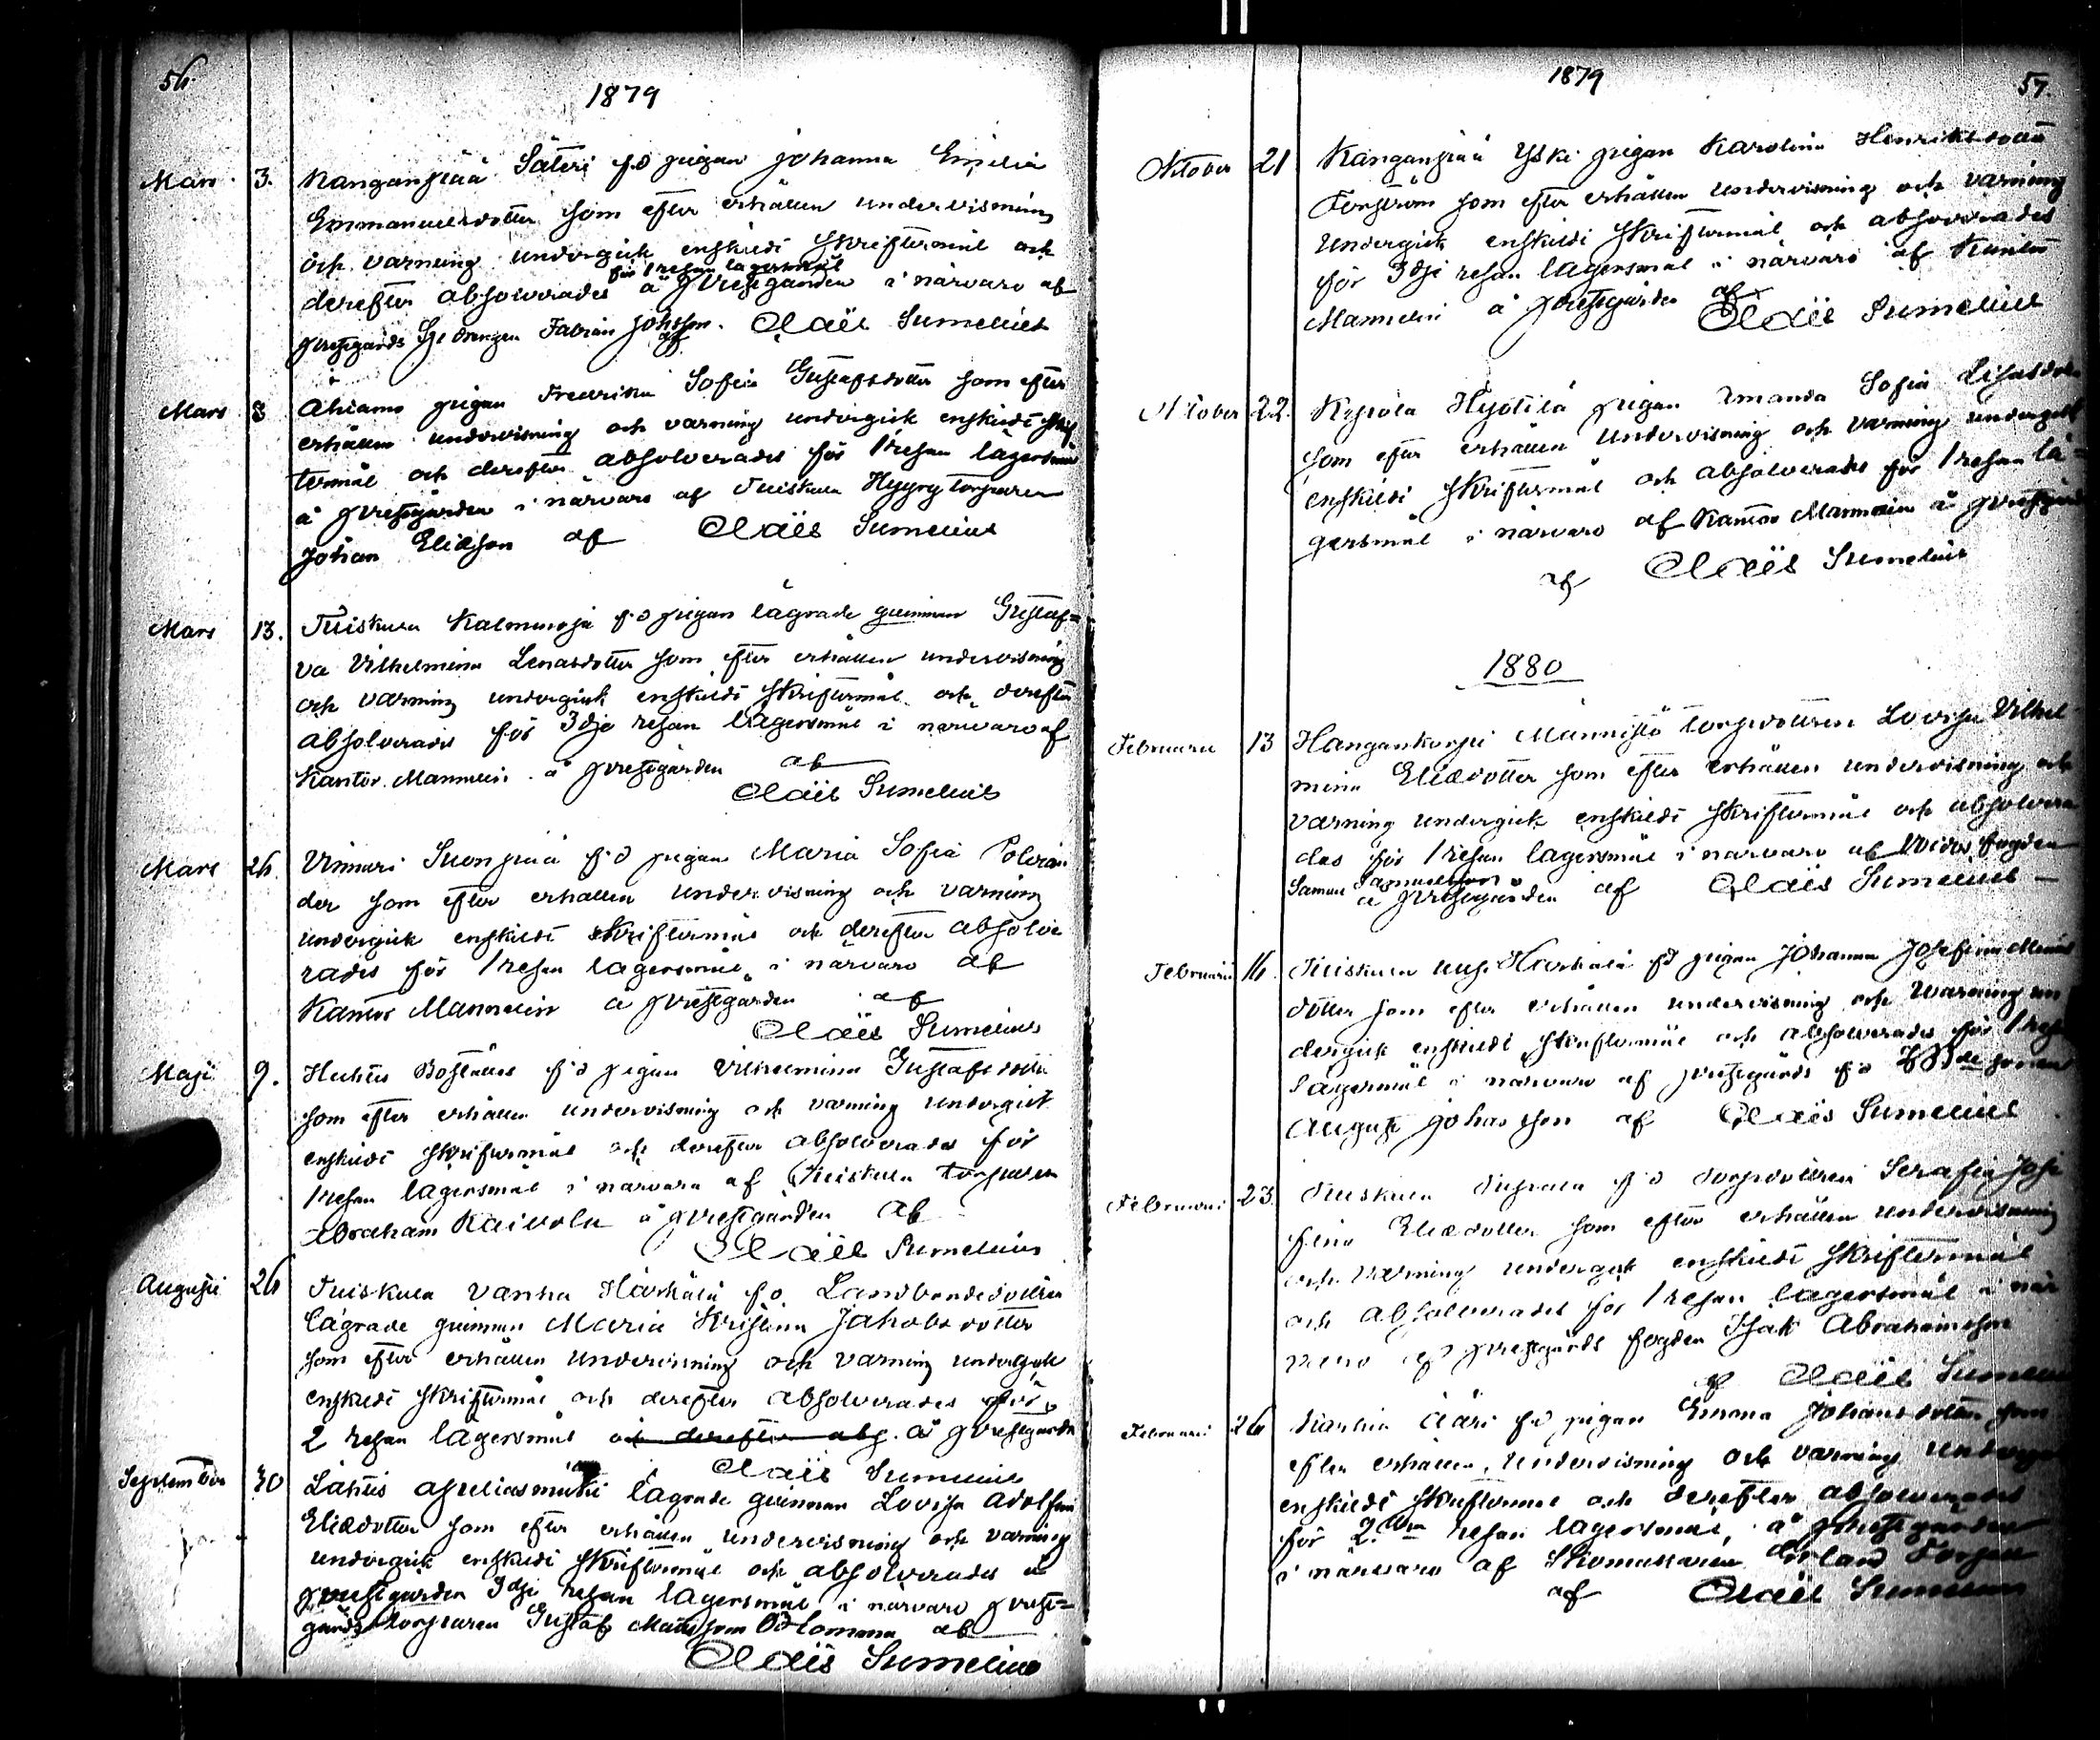 56.
1879
Mars 3. Kanganpää Säteri f.d pigan Johanna Emilia
Emmanuelsdotter som efter erhållen undervisning
och varning undergick enskildt skriftermål och
för 1 resan lägersmål
derefter absolverades å prestgården i närvaro af
prestgårds drengen Fabian Johsson. af Claës Sumelius
Mars 8 Ahiamo pigan Fredrika Sofia Gustafsdotter som efter
erhållen undervisning och varning undergick enskildt skrif
termål och derefter absolverades för 1 resan lägersmål
å prestgården i närvaro af Tuiskula Hyyry torparen
Johan Eliasson af Claës Sumelius
Mars 13. Tuiskula Kalmunoja f.d pigan lägrade qvinnan Gustaf=
va Vilhelmina Lenasdotter som efter erhållen undervisning
och varning undergick enskildt skriftermål och derefter
absolverades för 3dje resan lägersmål i närvaro af
Kantor Mannelin å prestgården af
Claës Sumelius
Mars 26. Vinnari Suonpää f.d pigan Maria Sofia Polvian
der som efter erhållen undervisning och varning
undergick enskildt skriftermål och derefter absolve
rades för 1 resan lägersmål i närvaro af
Kantor Mannelin å prestgården af
Claës Sumelius
Maji 9. Huhtis Boställes f.d pigan Vilhelmina Gustafsdotter
som efter erhållen undervisning och varning undergick
enskildt skriftermål och derefter absolverades för
1 resan lägersmål i närvaro af Tuiskula torparen
Abraham Kaivola å prestgården af
Claës Sumelius
Augusti 26 Tuiskula Vanha Härkälä f.d. Landbondedottren
lägrade qvinnan Maria Kristina Jakobsdotter
som efter erhållen undervisning och varning undergick
enskildt skriftermål och derefter absolverades för
2 resan lägersmål och derefter abs. å prestgården
Claës Sumelius
September 30 Lähtis lägrade qvinnan Lovisa Adolfina
Eliædotter som efter erhållen undervisning och varning
undergick enskildt skriftermål och absolverades å
prestgården 3dje resan lägersmål i närvaro prest=
gårds torparen Gustaf Mattsson Blomma af
Claës Sumelius
1879
57.
Oktober 21 Kanganpää Yski pigan Karolina Henriksdotter
Forsström som efter erhållen undervisning och varning
undergick enskildt skriftermål och absolverades
för 3dje resan lägersmål i närvaro af Kantor
Mannelin å prestgården af Claës Sumelius
Oktober 22. Kepola Hyötilä pigan Amanda Sofia Lisasdotter
som efter erhållen undervisning och varning undergick
enskildt skriftermål och absolverades för 1 resan lä=
gersmål i närvaro af Kantor Mannelin å prestgården
af Claës Sumelius
1880
Februarii 13 Hangankorpi Männistö torpdottren Lovisa Vilhel
mina Eliædotter som efter erhållen undervisning och
varning undergick enskildt skriftermål och absolvera
des för 1 resan lägersmål i närvaro af fogden
Samuel Samuelsson å prestgården af Claës Sumelius
Februarii 16. Tuiskula Härkälä f.d pigan Johanna Josefina
dotter som efter erhållen undervisning och varning un
dergick enskildt skriftermål och absolverades för 1 resan
lägersmål i närvaro af prestgårds f.d
August Johansson af Claës Sumelius
Februarii 23. Tuiskula f.d torpdottren Serafia Jose
fina Eliædotter som efter erhållen undervisning
och varning undergick enskildt skriftermål
och absolverades för 1 resan lägersmål i när
varo af prestgårds fogden Isak Abrahamsson
af Claës Sumelius
Februarii 26 f.d pigan Emma Johansdotter som
efter erhållen undervisning och varning undergick
enskildt skriftermål och derefter absolverades
för 2dra resan lägersmål, å prestgården
i närvaro af Skomakaren
af Claës Sumelius